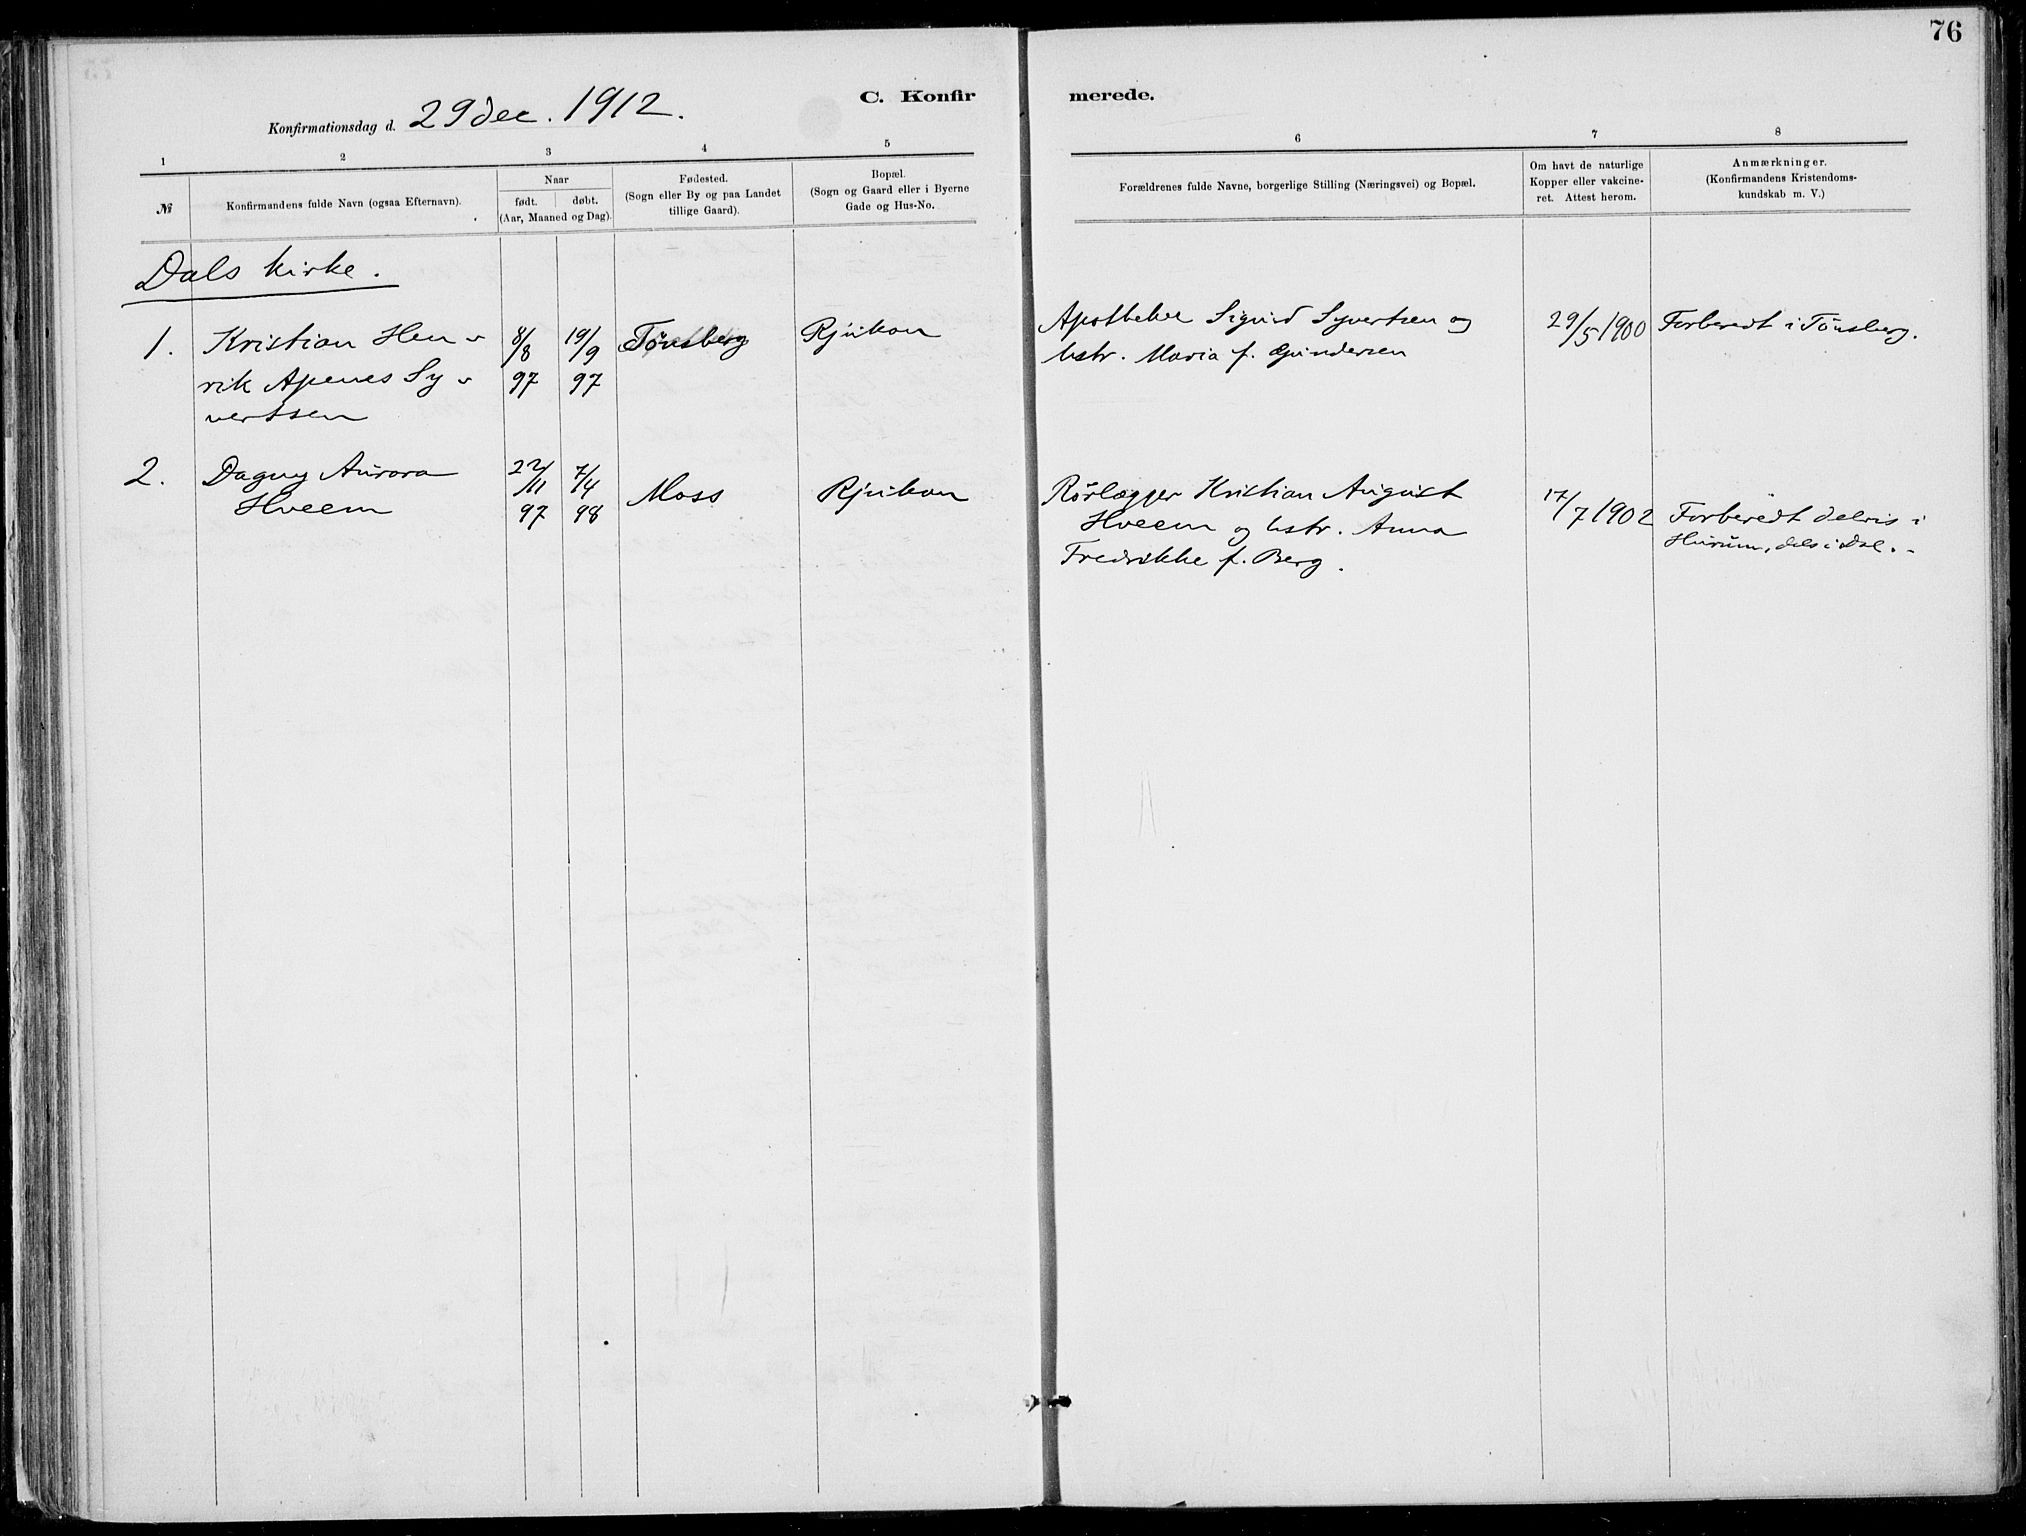 76
C. Konfir merede.
Konfirmationsdag d. 29 dec. 1912.
1 2 3 4 5 6 7 8
№
Konfirmandens fulde Navn (ogsaa Efternavn).
Naar
født. døbt.
(Aar, Maaned og Dag).
Fødested.
(Sogn eller By og paa Landet
tillige Gaard).
Bopæl.
(Sogn og Gaard eller i Byerne
Gade og Hus-No.
Forældrenes fulde Navne, borgerlige Stilling (Næringsvei) og Bopæl.
Om havt de naturlige
Kopper eller vakcine-
ret. Attest herom.
Anmærkninger.
(Konfirmandens Kristendoms-
kundskab m. V.)
Dals kirke.
1. Kristian Hen- 8/8 19/9 Tønsberg Rjukan Apotheker Sigurd Syvertsen og 29/5 1900 Forberedt i Tønsberg.
rik Apenes Sy- 97 97 hstr. Maria f. Gundersen
vertsen
2. Dagny Aurora 22/11 7/4 Moss Rjukan Rørlægger Kristian August 17/7 1902 Forberedt delvis i
Hveem 97 98 Hveem og hstr. Anna Hurum, dels i Dal.
Fredrikke f. Berg.